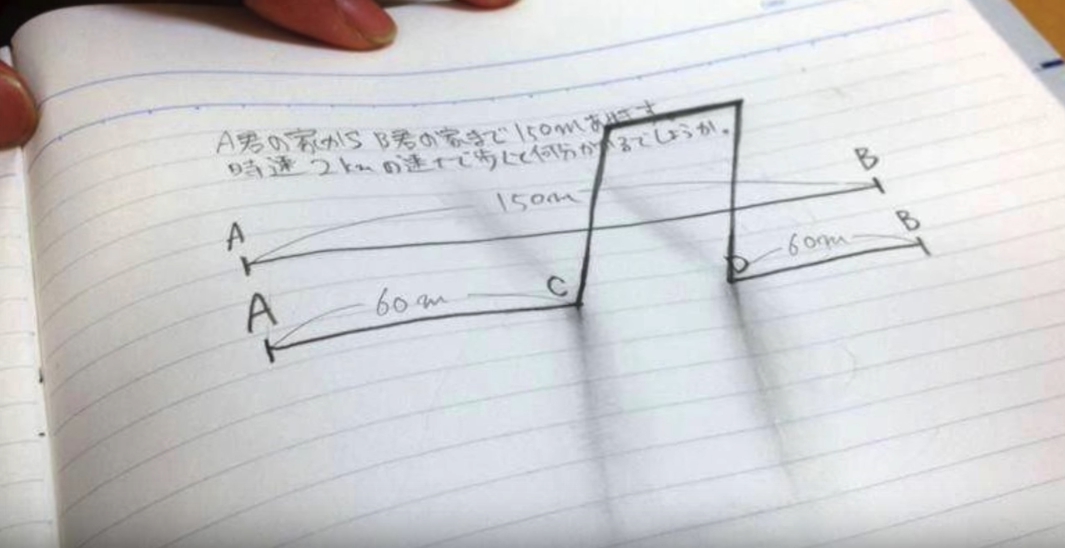 A君の家から B君の家まで150mあります
時速 2kmの速さで歩くと何分かかるでしょうか。
150m
B
A
B
60m
D
C
60m
A